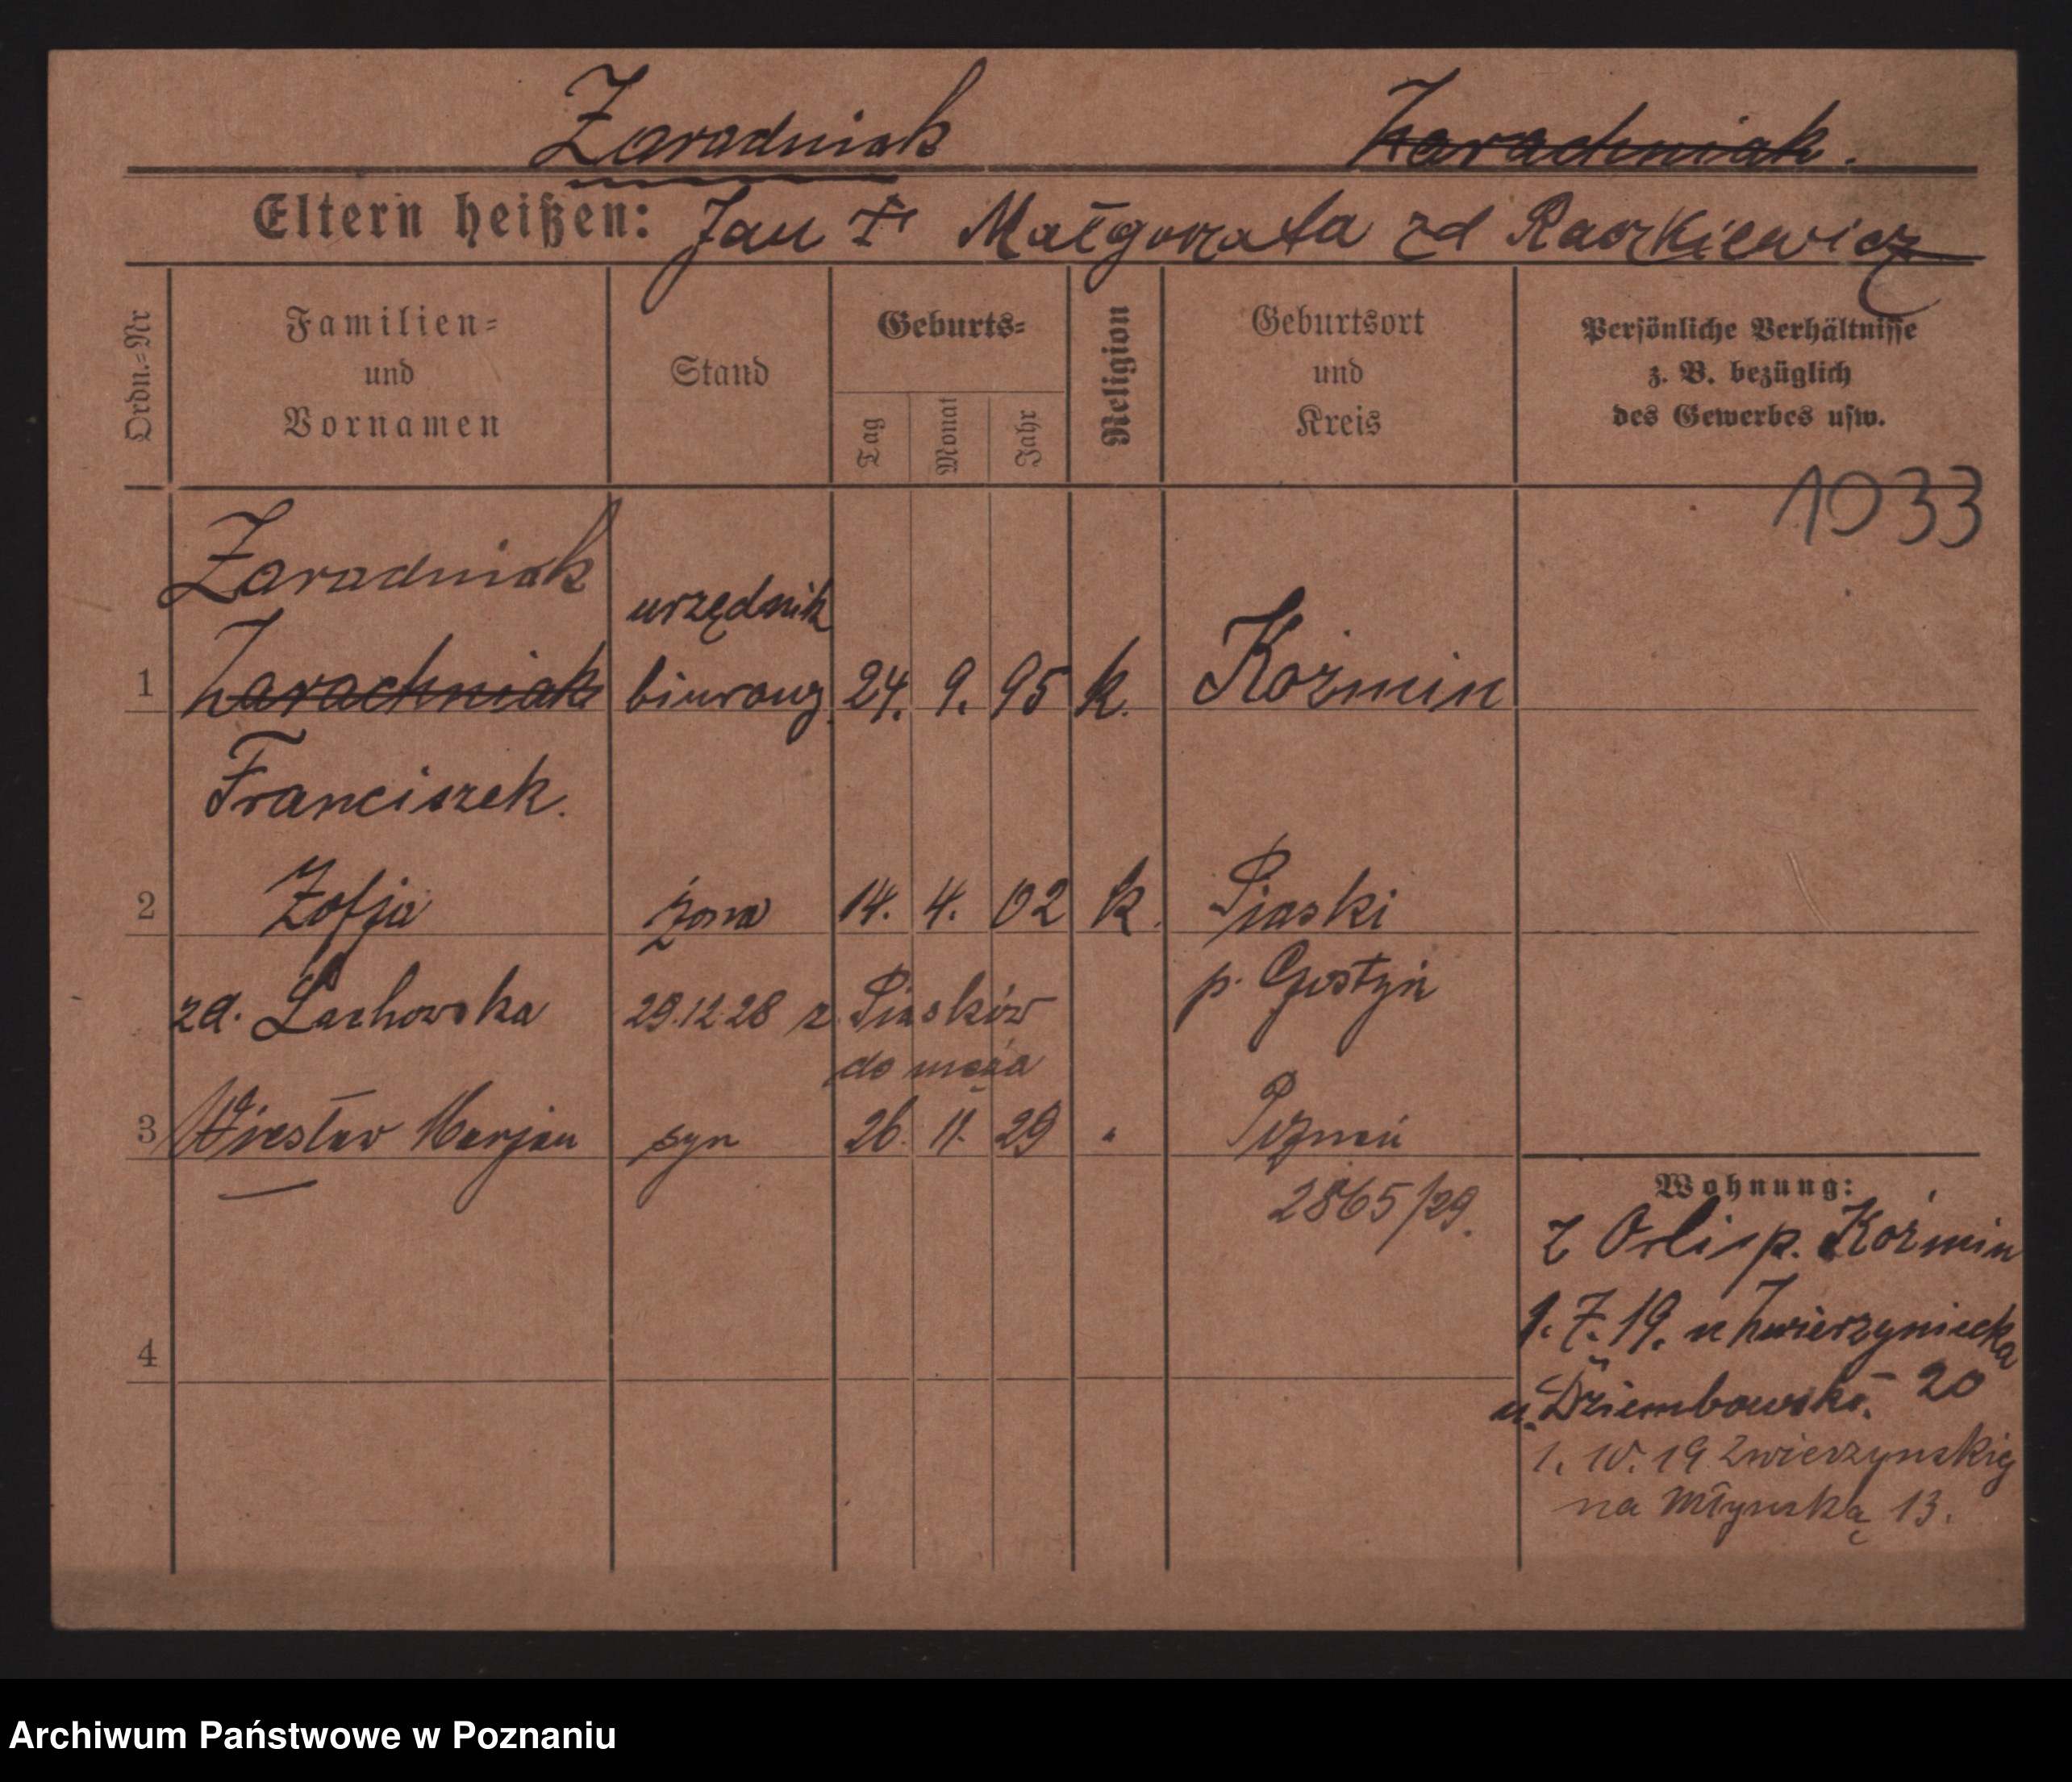 Zaradniak Zarachniak.
Eltern heißen: Jan † Małgorzata zd Raszkiewicz
Ordn.=Nr
Familien= und Vornamen
Stand
Geburts=
Tag Monat Jahr
Religion
Geburtsort und Kreis
Persönliche Verhältnisse
z. B. bezüglich
des Gewerbes usw.
1033
Zaradniak
urzędnik
1 Zarachniak biurowy 24. 9. 95 k. Koźmin
Franciszek.
2 Zofja żona 14. 4. 02 k. Piaski
zd. Lachowska 29.12.28 z Piasków p. Gostyń
do męża
3 Wiesław Marjan syn 26. 11. 29 " Poznań
2865/29.
4
Wohnung:
z Orli p. Koźmin
1. 7. 19. u Zwierzyniecka
u. Dziembowski. 20
1. 10. 19 Zwierzynskiej
na Młyńską 13.
Archiwum Państwowe w Poznaniu